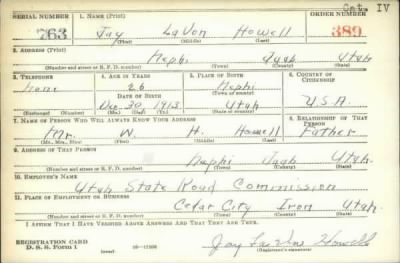 Cat. IV
SERIAL NUMBER 1. NAME (Print) ORDER NUMBER
763 Jay LaVon Howell 389
(First) (Middle) (Last)
2. ADDRESS (Print)
Nephi Juab Utah
(Number and street or R. F. D. number) (Town) (County) (State)
3. TELEPHONE 4. AGE IN YEARS 5. PLACE OF BIRTH 6. COUNTRY OF CITIZENSHIP
none 26 Nephi
(Town or county)
DATE OF BIRTH
Dec. 30 1913 Utah U.S.A.
(Exchange) (Number) (Mo.) (Day) (Yr.) (State or country)
7. NAME OF PERSON WHO WILL ALWAYS KNOW YOUR ADDRESS 8. RELATIONSHIP OF THAT PERSON
Mr. W. H. Howell Father
(Mr., Mrs., Miss) (First) (Middle) (Last)
9. ADDRESS OF THAT PERSON
Nephi Juab Utah.
(Number and street or R. F. D. number) (Town) (County) (State)
10. EMPLOYER'S NAME
Utah State Road Commission
11. PLACE OF EMPLOYMENT OR BUSINESS
Cedar City Iron Utah.
(Number and street or R. F. D. number) (Town) (County) (State)
I AFFIRM THAT I HAVE VERIFIED ABOVE ANSWERS AND THAT THEY ARE TRUE.
REGISTRATION CARD
D. S. S. Form 1 (over) Jay LaVon Howell
(Registrant's signature)